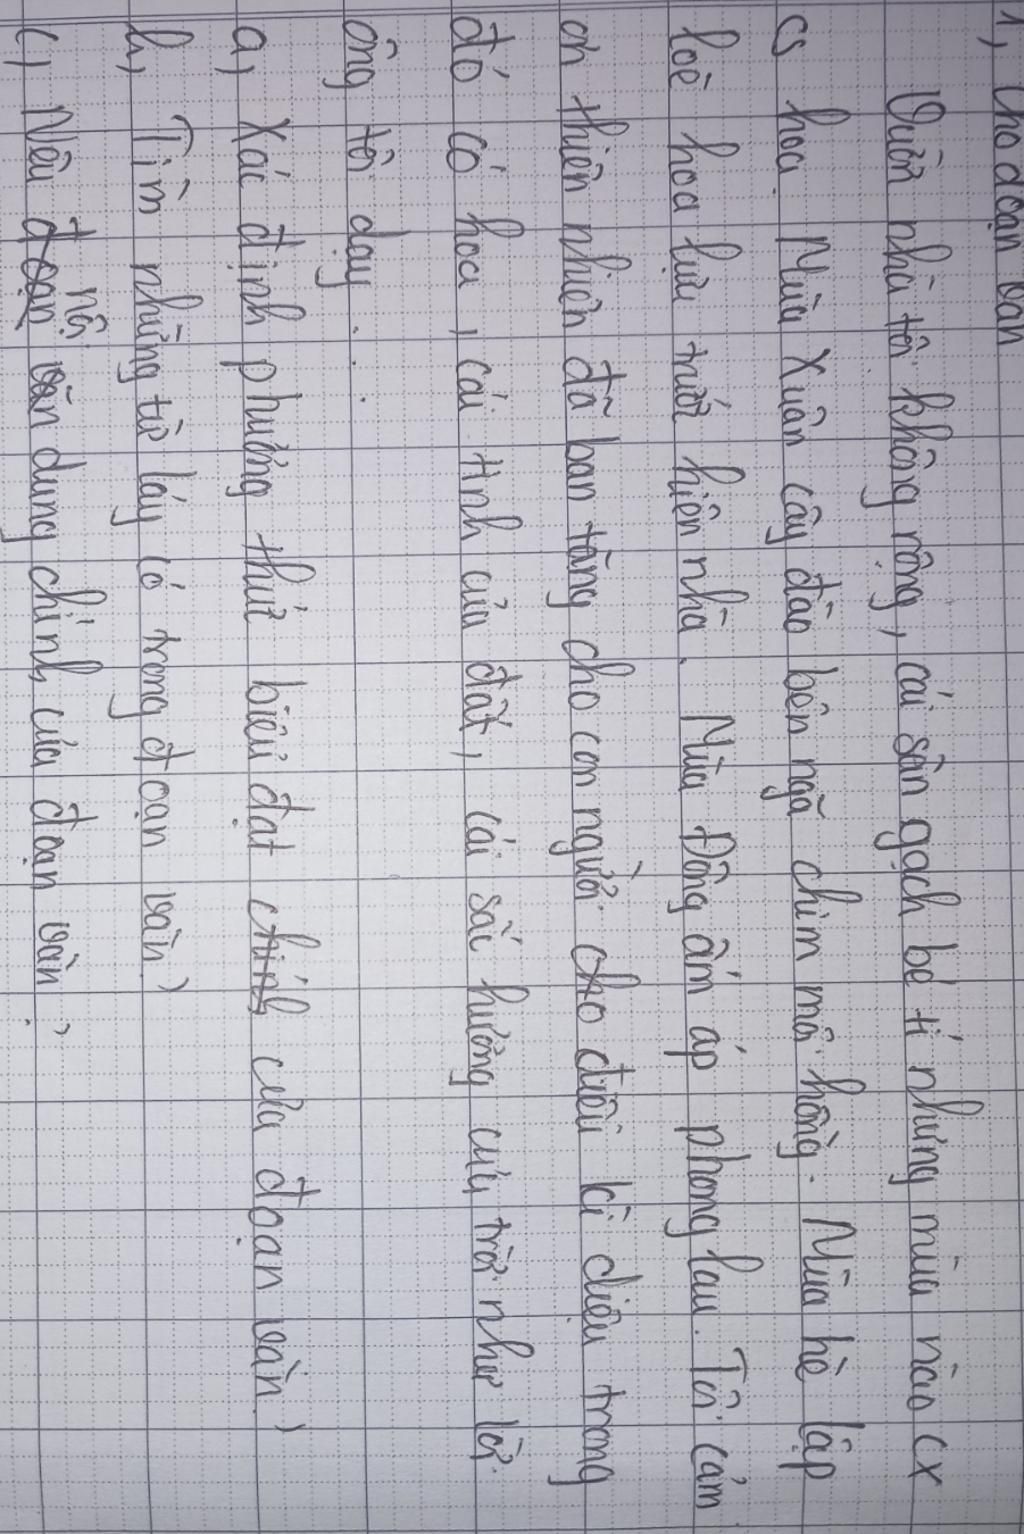 1, Cho đoạn văn
Vườn nhà tôi không rộng, cái sân gạch bé tí nhưng mùa nào cx
cs hoa. Mùa Xuân cây đào bên ngõ chim môi hồng. Mùa hè lập
loè hoa lựu trước hiên nhà. Mùa Đông ấm áp phong lau. Tôi cảm
ơn thiên nhiên đã ban tặng cho con người cho điều kì diệu trong
đó có hoa, cái tinh của đất, cái sắc hương của trời như lời
ông tôi dạy...
a, Xác định phương thức biểu đạt chính của đoạn văn?
b, Tìm những từ láy có trong đoạn văn?
c, Nêu nội dung chính của đoạn văn?